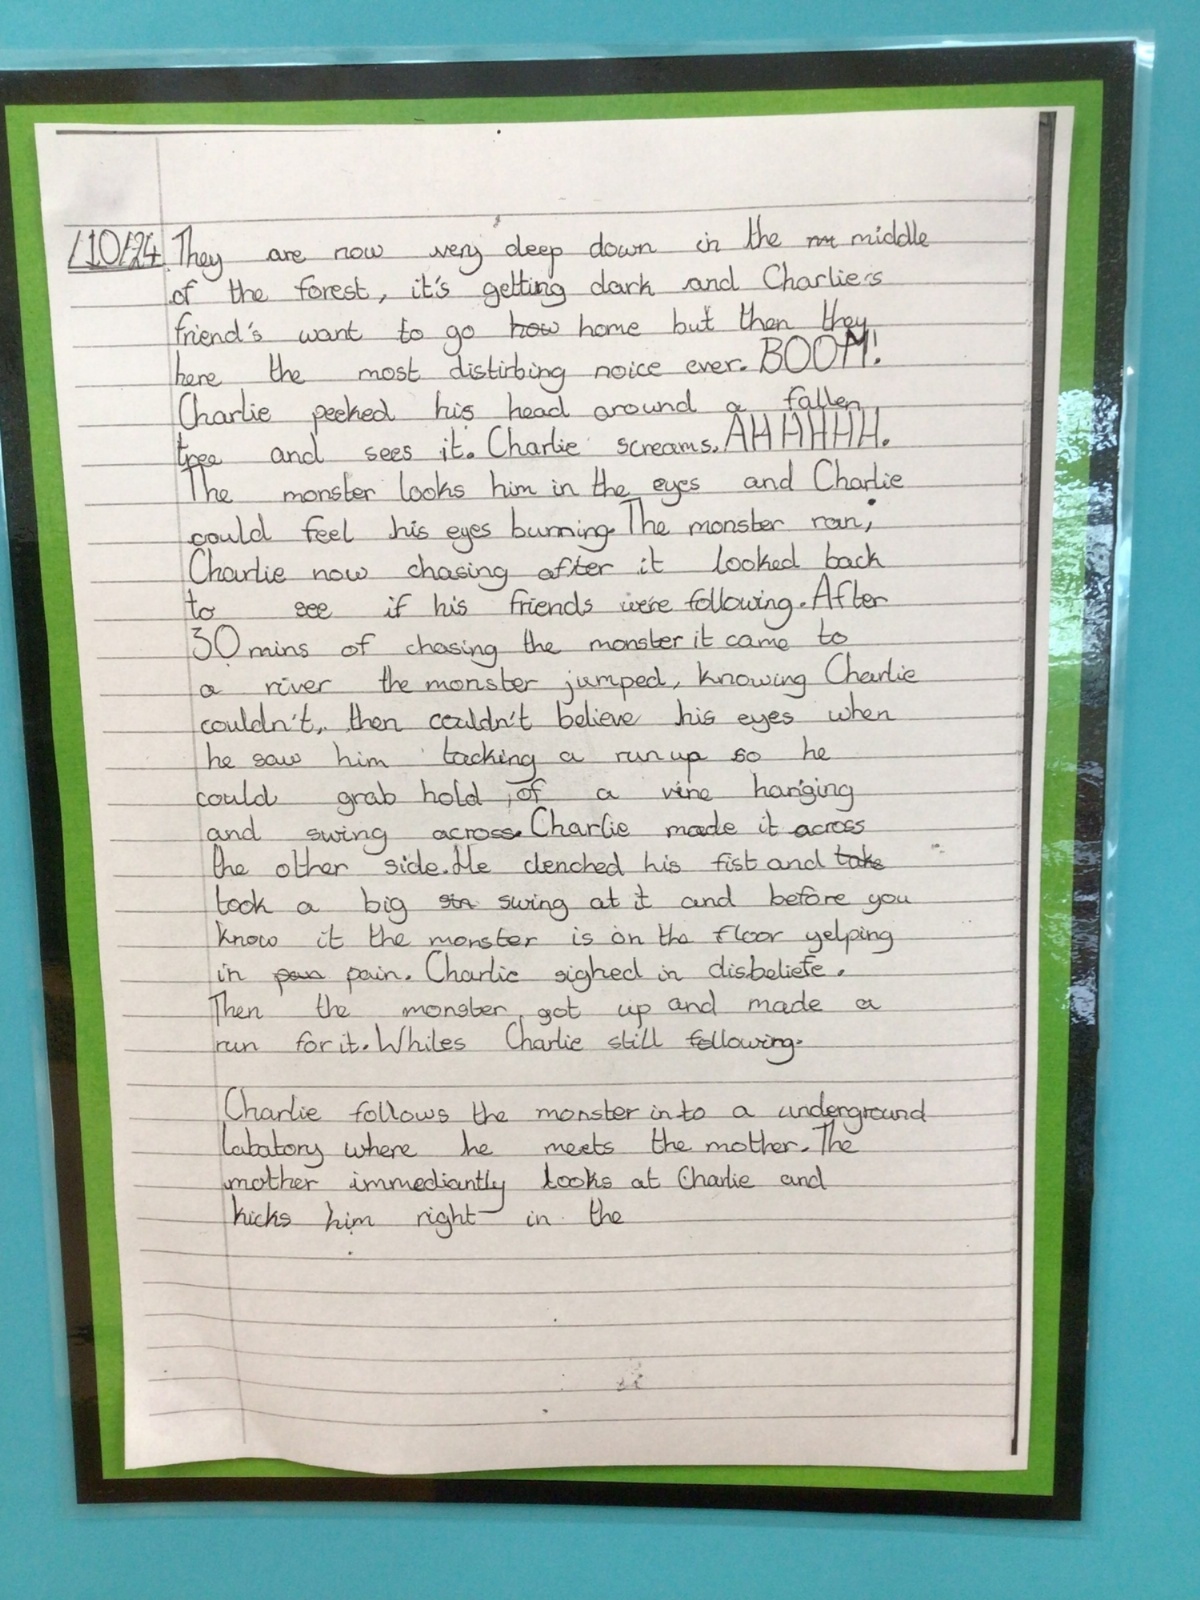 /10/24 They are now very deep down in the m middle
of the forest, it's getting dark and Charlie's
friend's want to go how home but then they
here the most distirbing noice ever. BOOM!
Charlie peeked his head around a fallen
tree and sees it. Charlie screams. AHAHHHH.
The monster looks him in the eyes and Charlie
could feel his eyes burning. The monster ran;
Charlie now chasing after it looked back
to see if his friends were following. After
30 mins of chasing the monster it came to
a river the monster jumped, knowing Charlie
couldn't, then couldn't believe his eyes when
he saw him tacking a run up so he
could grab hold, of a vine hanging
and swing across. Charlie made it across
the other side. He clenched his fist and take
took a big sin swing at it and before you
know it the monster is on the floor yelping
in pan pain. Charlie sighed in disbeliefe.
Then the monster, got up and made a
run for it. Whiles Charlie still following.
Charlie follows the monster into a underground
labatory where he meets the mother. The
mother immediantly looks at Charlie and
kicks him right in the